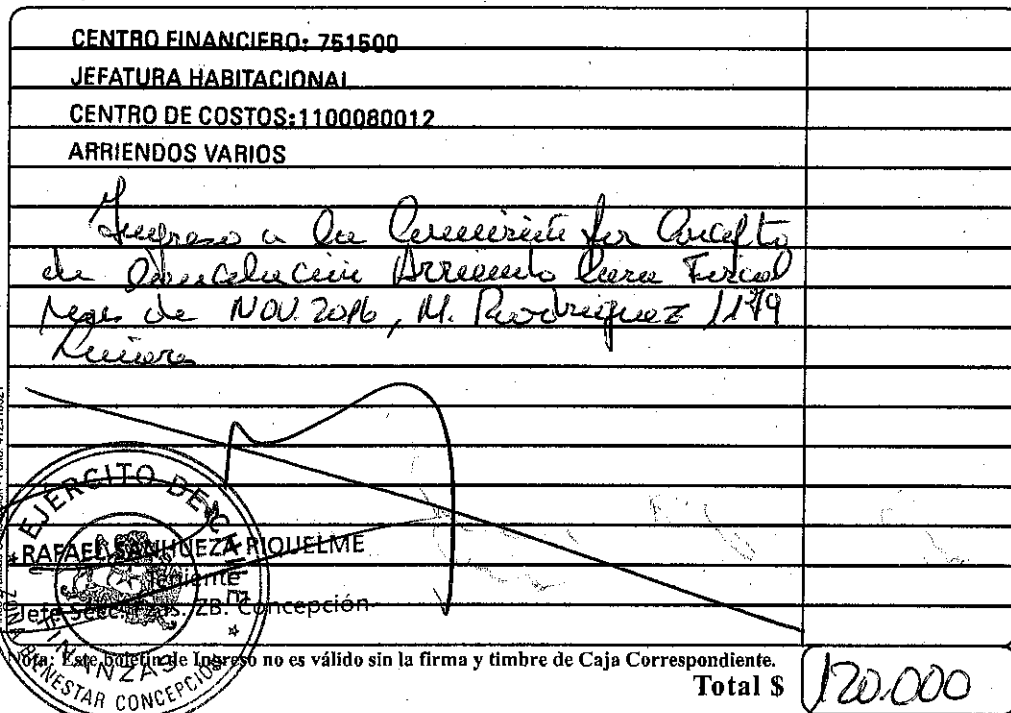 CENTRO FINANCIERO: 751500
JEFATURA HABITACIONAL
CENTRO DE COSTOS:1100080012
ARRIENDOS VARIOS
Ingreso a la por Concepto
de Arriendo Fiscal
de NOV. 2016, M. Rodriguez 1179
EJÉRCITO DE CHILE
RAFAEL SANHUEZA RIQUELME
Teniente
Jefe Secc. Fzas. ZB. Concepción
FINANZAS
ZONA BIENESTAR CONCEPCIÓN
Nota: Este boletín de Ingreso no es válido sin la firma y timbre de Caja Correspondiente.
Total $ 120.000